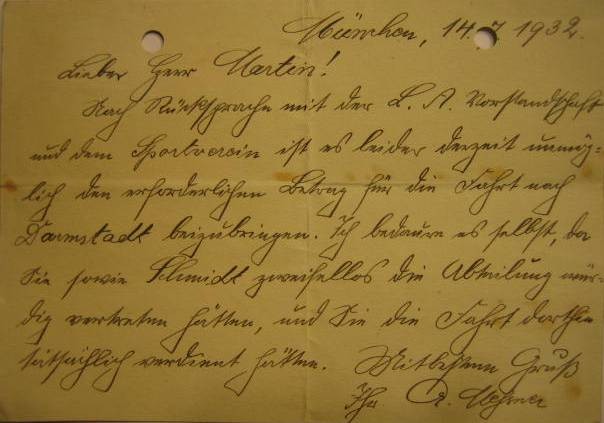 München, 14. 7. 1932.
Lieber Herr Martin!
Nach Rücksprache mit der L. A. Vorstandschaft
und dem Sportverein ist es leider derzeit unmög-
lich den erforderlichen Betrag für die Fahrt nach
Darmstadt beizubringen. Ich bedaure es selbst, da
Sie sowie Schmidt zweifellos die Abteilung wür-
dig vertreten hätten, und Sie die Fahrt dorthin
tatsächlich verdient hätten. Mit bestem Gruß
Ihr